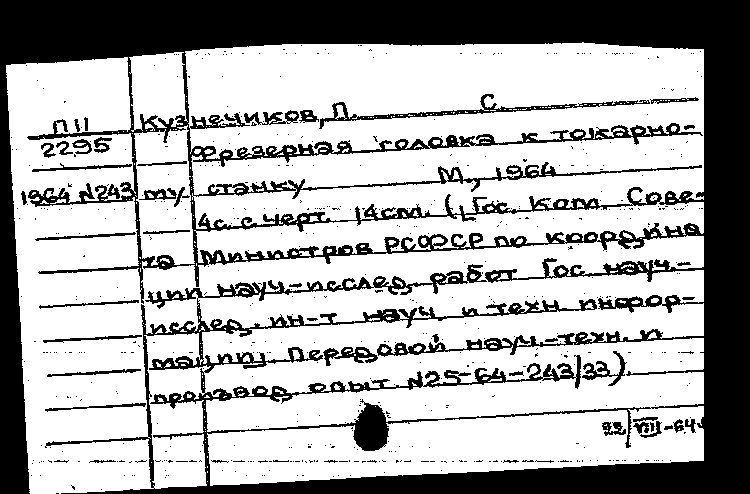 П11 Кузнечиков, П. С.
2295 Фрезерная головка к токарно-
1964 N243 му станку. М., 1964
4с. с черт. 14см. (Гос. Ком. Сове-
та Министров РСФСР по коорд.ина
ции науч.-исслед. работ Гос. науч.-
исслед. ин-т науч. и техн. инфор-
мации. Передовой науч.-техн. и
производ. опыт N25-64-243/33).
22/VIII-64г